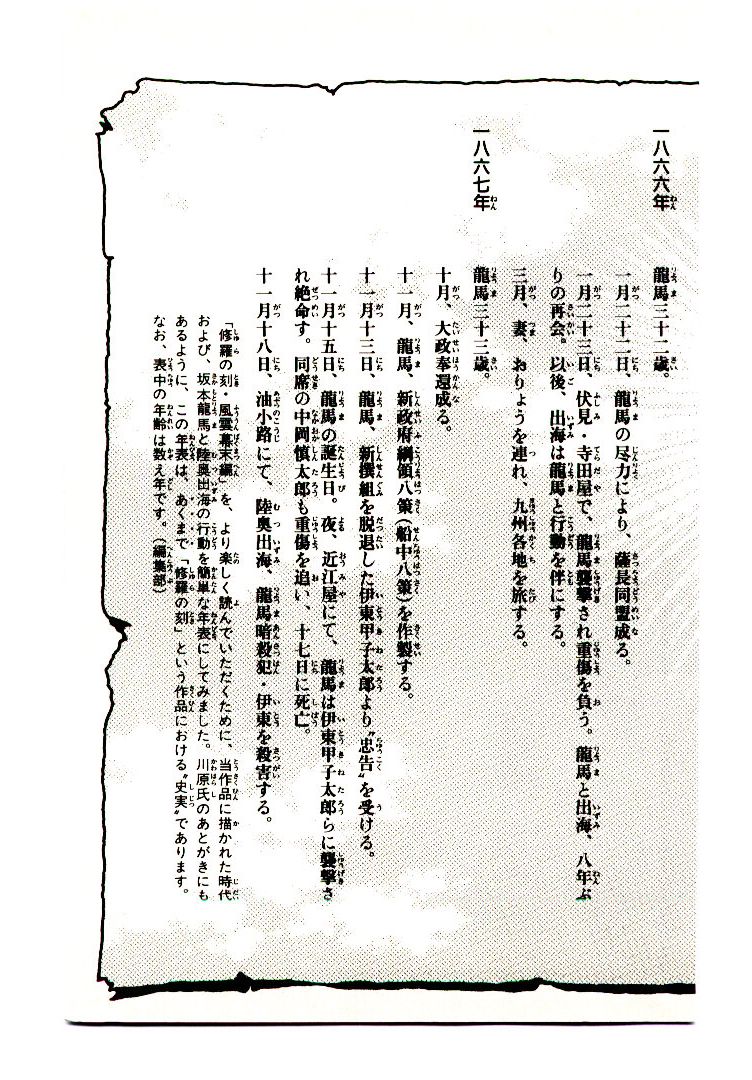 一八六六年
龍馬三十二歳。
一月二十二日、龍馬の尽力により、薩長同盟成る。
一月二十三日、伏見・寺田屋で、龍馬襲撃され重傷を負う。龍馬と出海、八年ぶ
りの再会。以後、出海は龍馬と行動を伴にする。
三月、妻、おりょうを連れ、九州各地を旅する。
一八六七年
龍馬三十三歳。
十月、大政奉還成る。
十一月、龍馬、新政府綱領八策(船中八策)を作製する。
十一月十三日、龍馬、新撰組を脱退した伊東甲子太郎より〝忠告〟を受ける。
十一月十五日、龍馬の誕生日。夜、近江屋にて、龍馬は伊東甲子太郎らに襲撃さ
れ絶命す。同席の中岡慎太郎も重傷を追い、十七日に死亡。
十一月十八日、油小路にて、陸奥出海、龍馬暗殺犯・伊東を殺害する。
「修羅の刻・風雲幕末編」を、より楽しく読んでいただくために、当作品に描かれた時代
および、坂本龍馬と陸奥出海の行動を簡単な年表にしてみました。川原氏のあとがきにも
あるように、この年表は、あくまで「修羅の刻」という作品における〝史実〟であります。
なお、表中の年齢は数え年です。(編集部)